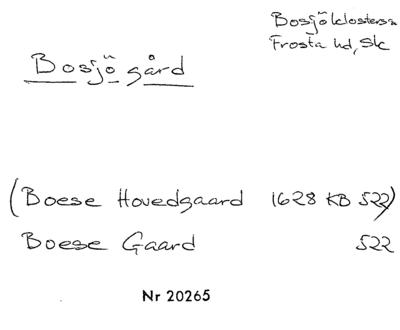 Bosjöklosters sn
Frosta hd, Sk
Bosjö gård
(Boese Hovedgaard 1628 KB 522)
Boese Gaard 522
Nr 20265